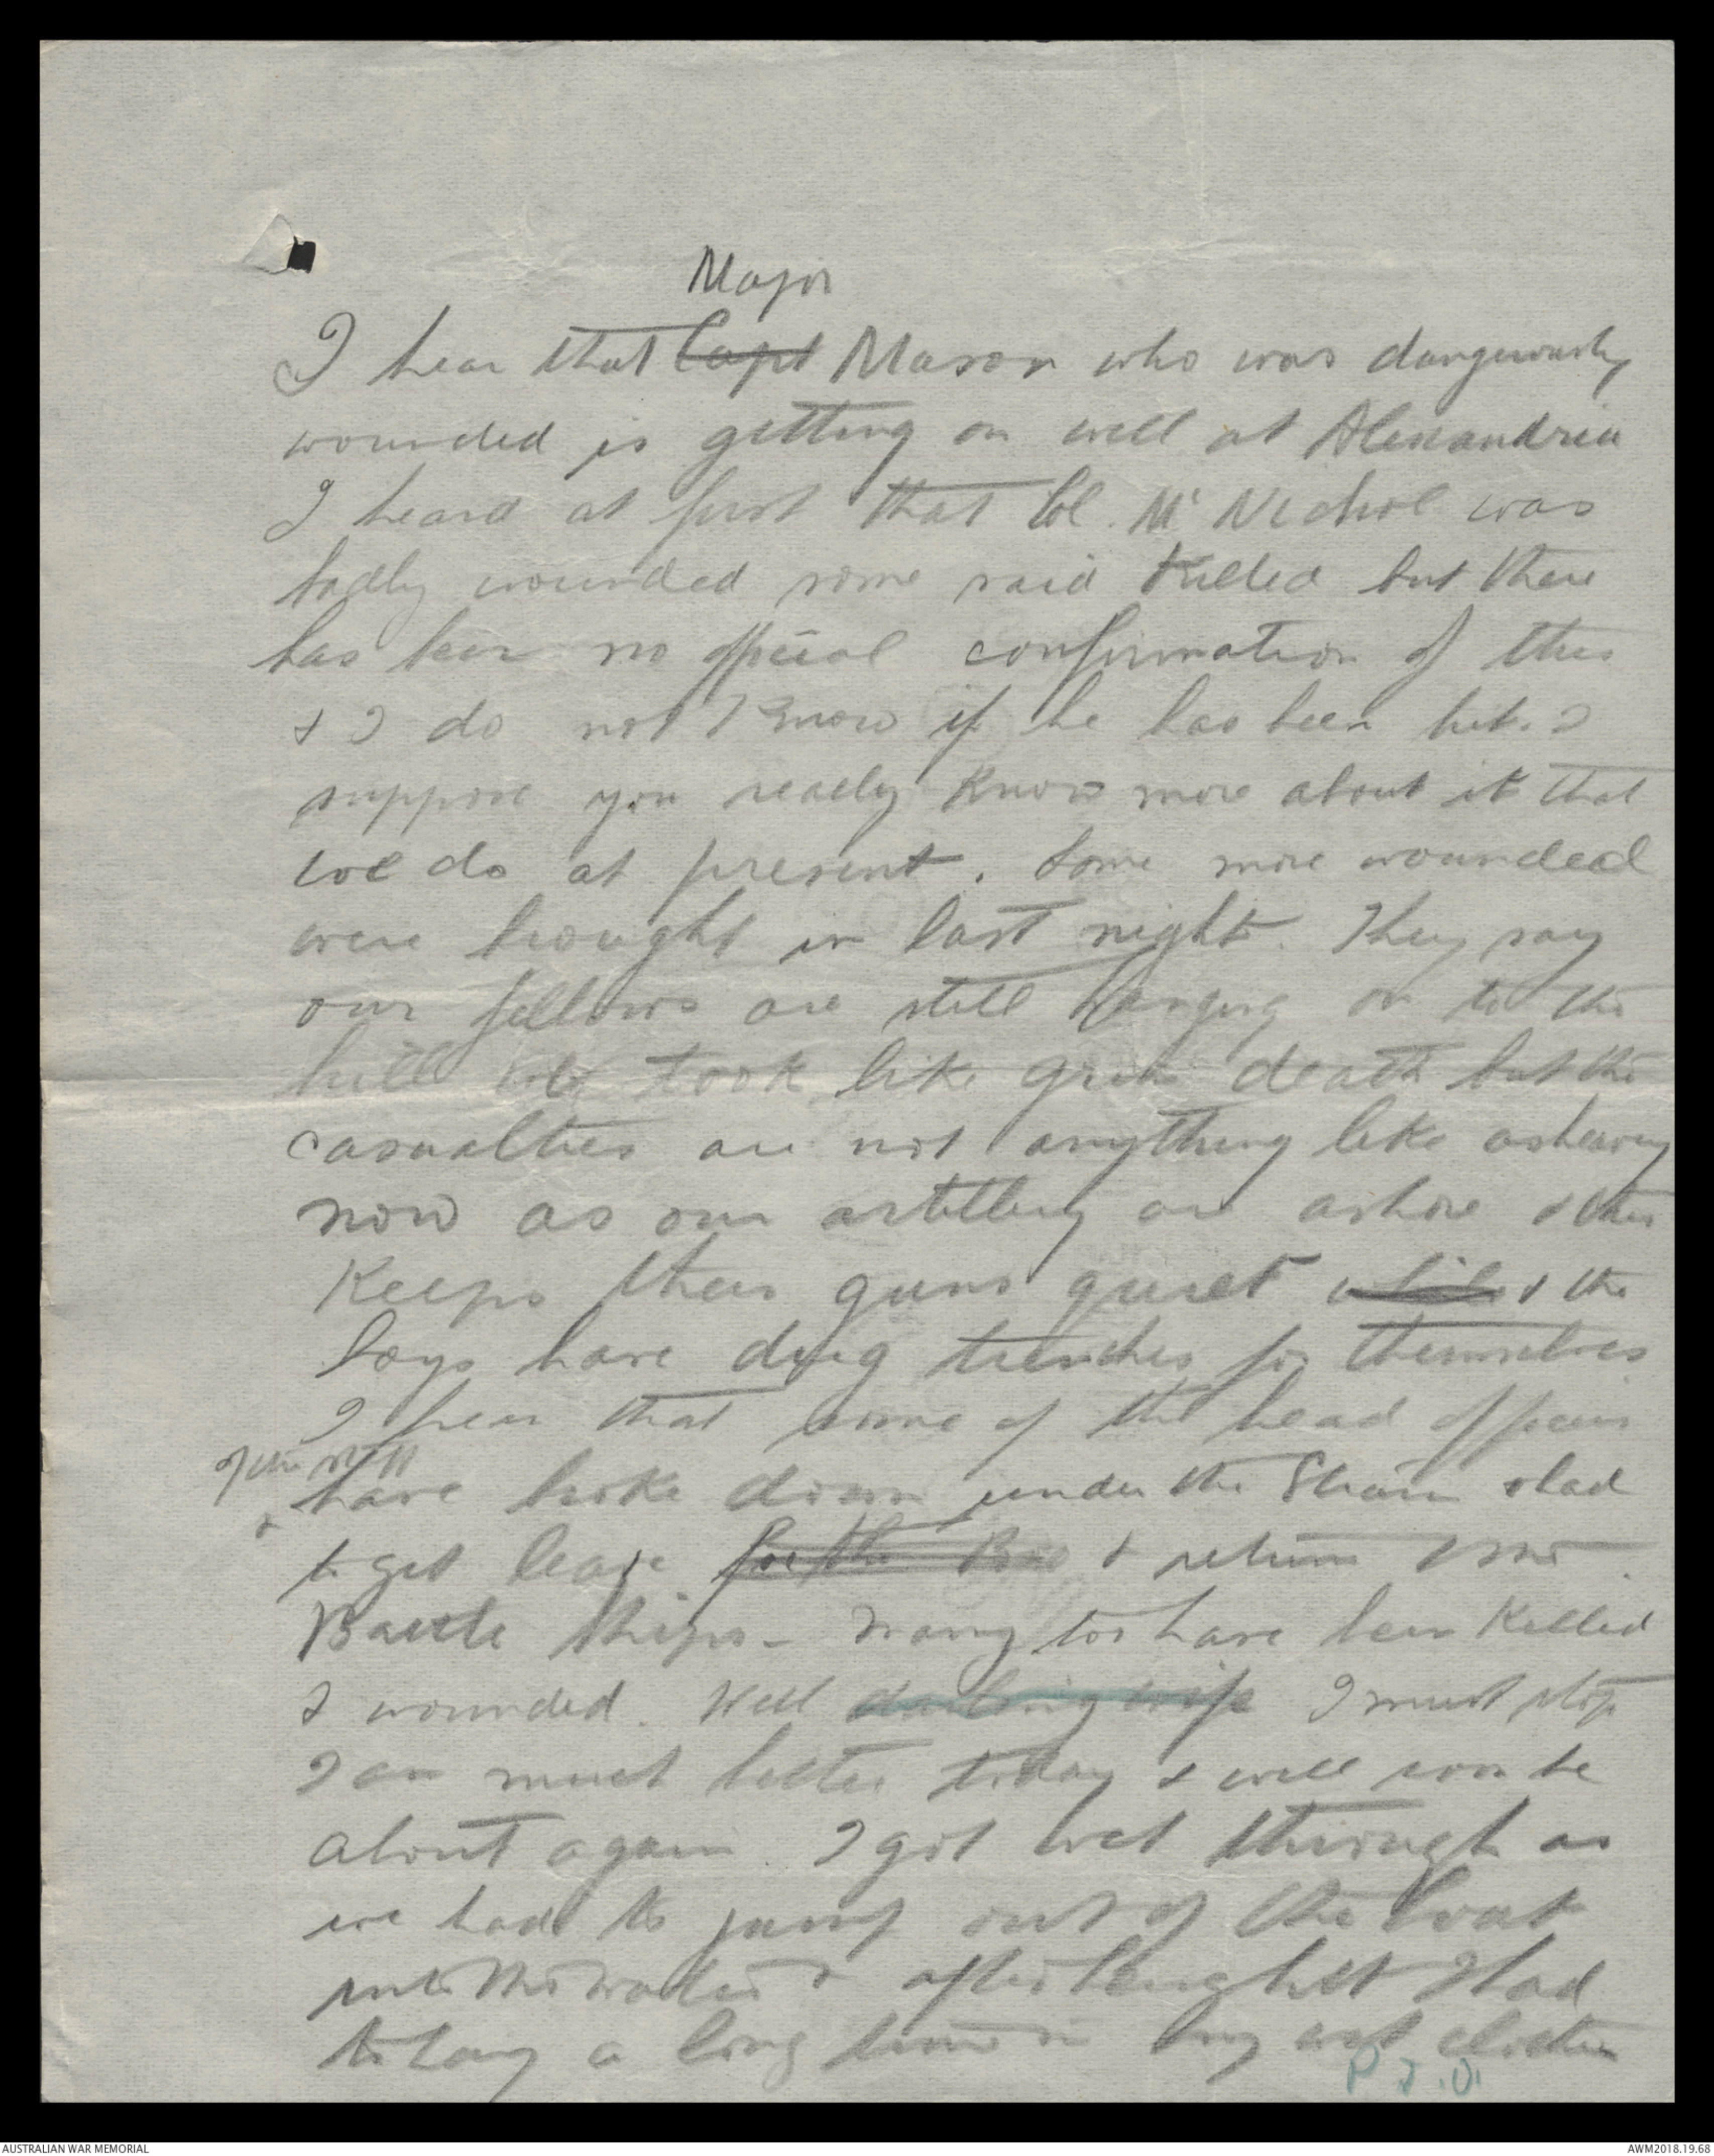 Major
I hear that Capt Mason who was dangerously
wounded is getting on well at Alexandria
I heard at first that Col. Mc Nichol was
badly wounded some said killed but there
has been no official confirmation of this
& I do not know if he has been hit. I
suppose you really know more about it that
we do at present. Some more wounded
were brought in last night. They say
our fellows are still hanging on to the
hill we took like grim death but the
casualties are not anything like as heavy
now as our artillery are ashore & this
keeps their guns quiet & the
boys have dug trenches for themselves
I hear that some of the head officers
of the staff
have broke down under the strain & had
to get leave for the & return
Battle ships - many too have been killed
& wounded. Well darling wife I must stop
I am much better today & will soon be
about again. I got wet through as
we had to jump out of the boat
into the water & after being hit I had
to lay a long time in my wet clothes
P.T.O.
AUSTRALIAN WAR MEMORIAL
AWM2018.19.68